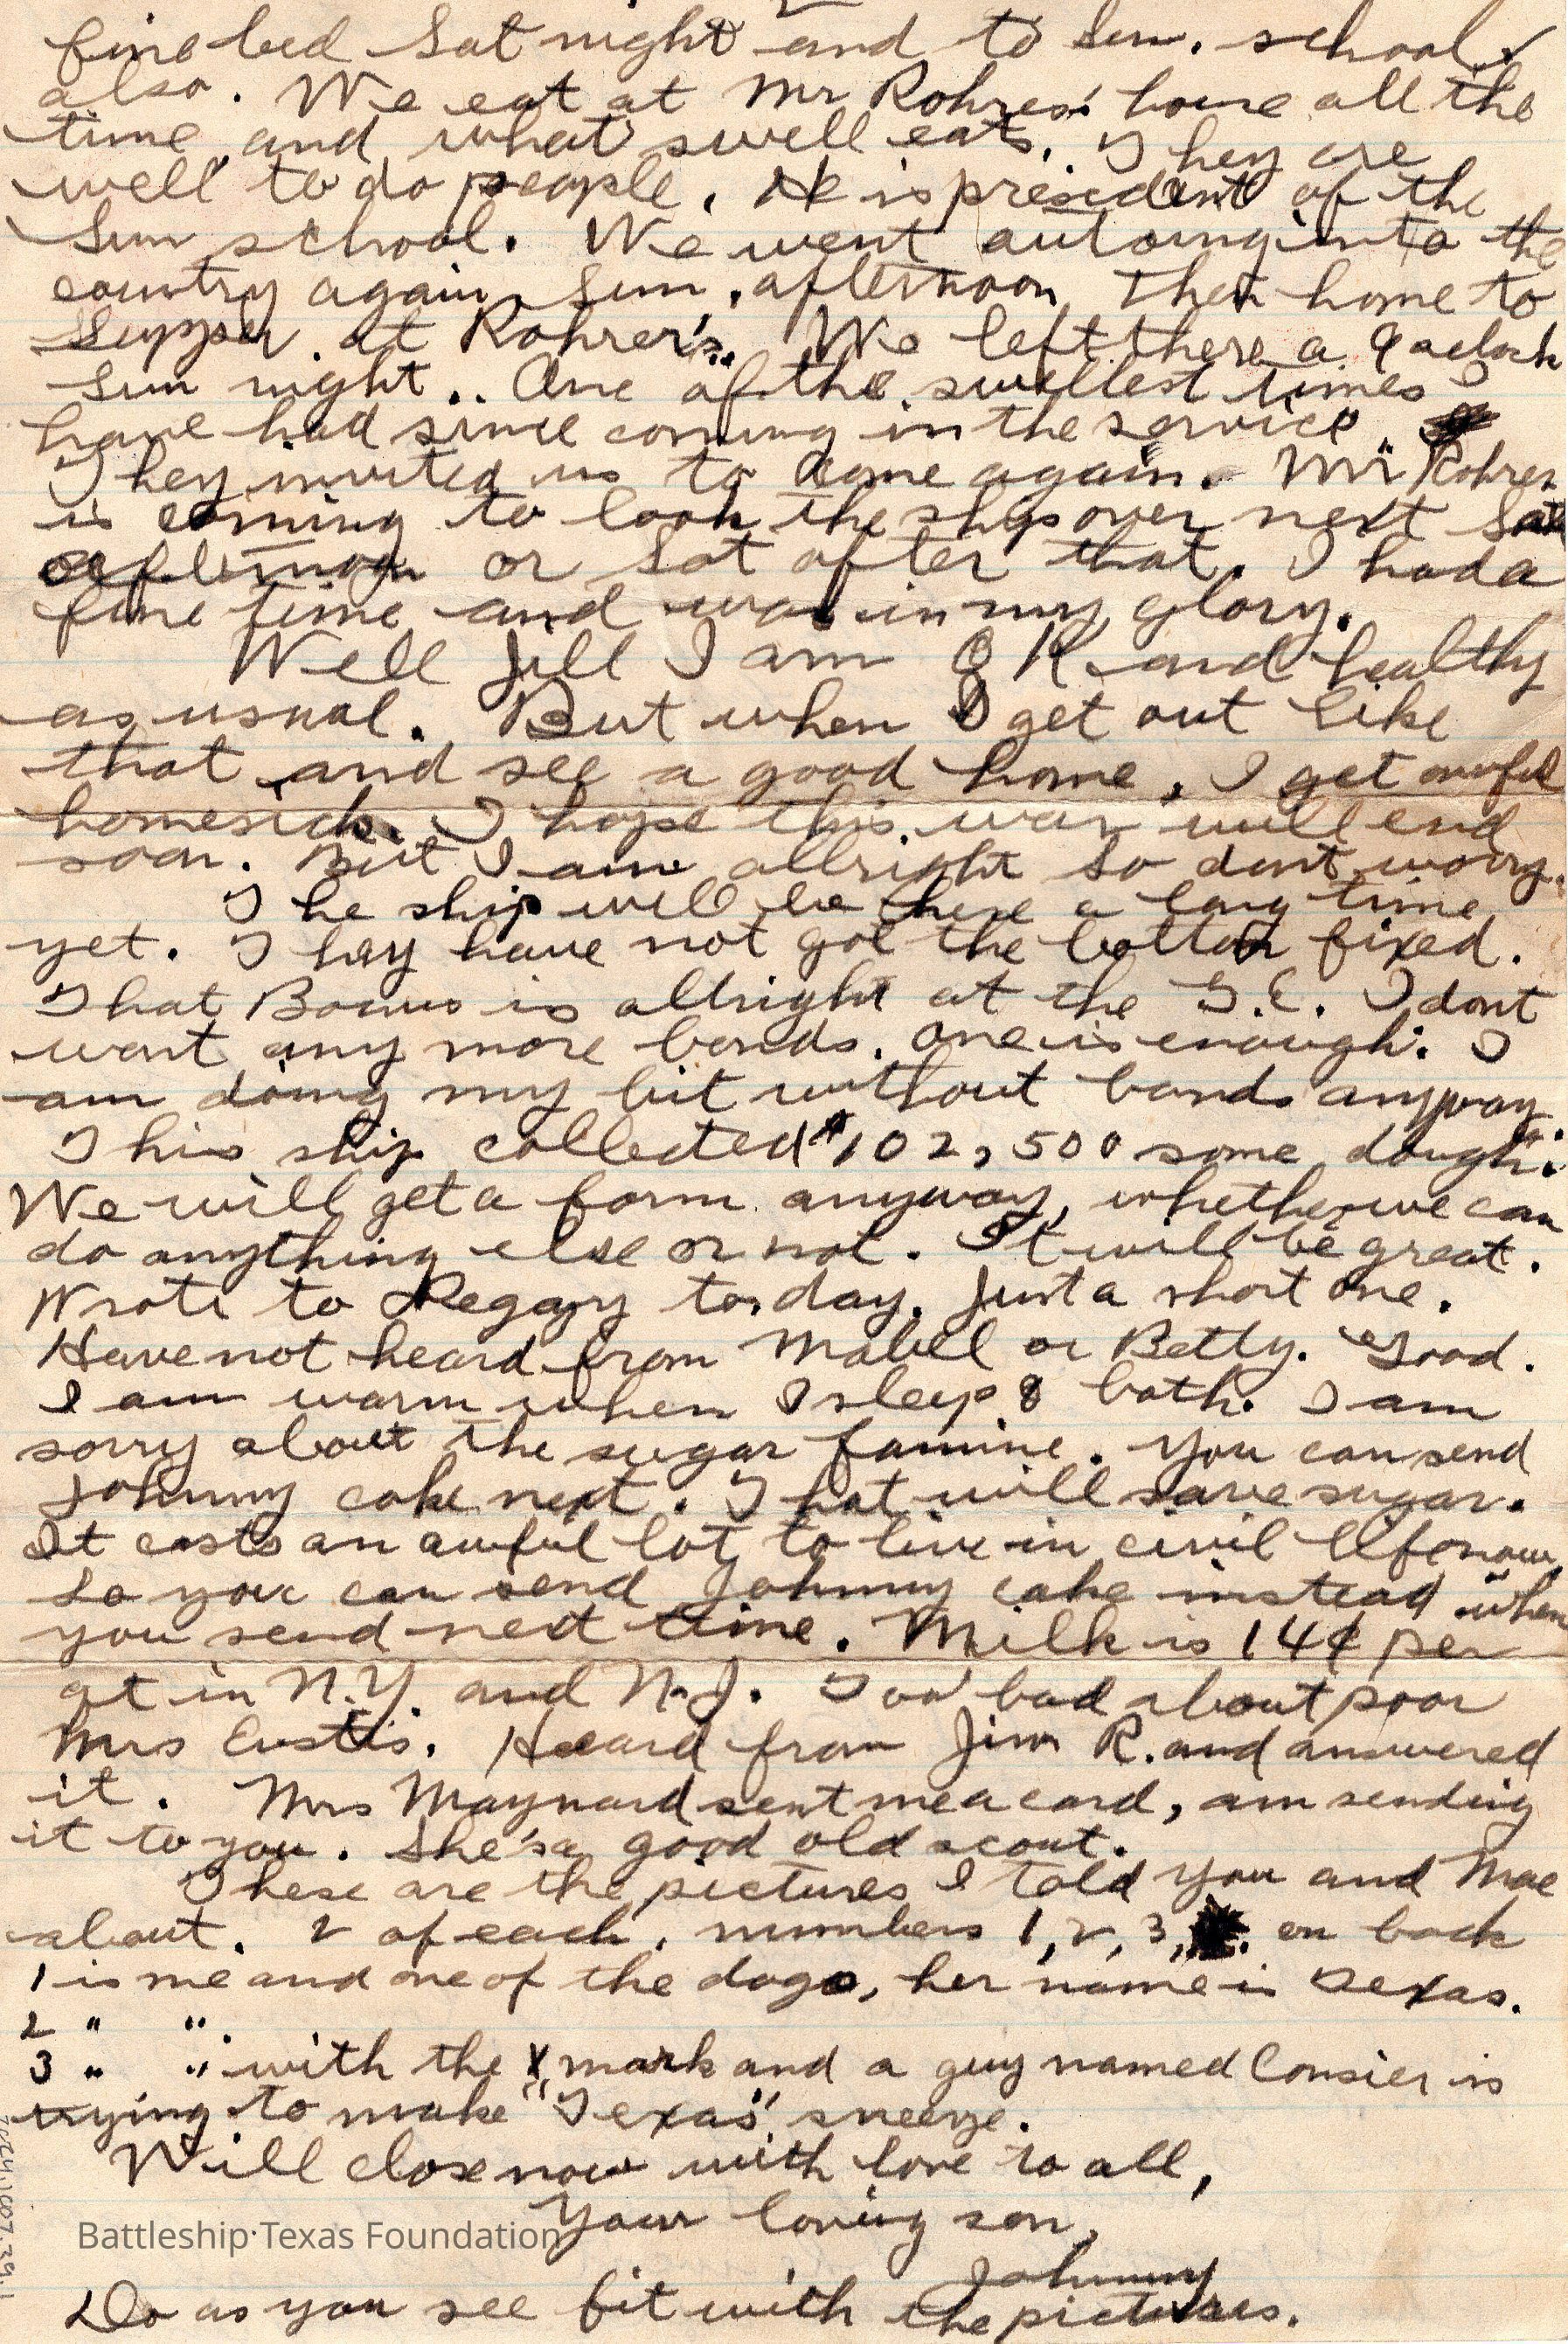 fine bed Sat night and to Sun. school
also. We eat at Mr Rohrers' house all the
time and what swell eats. They are
well to do people. He is president of the
Sun school. We went autoing into the
country again Sun. afternoon then home to
supper at Rohrer's. We left there a 9 aclock
Sun night. One of the swellest times I
have had since coming in the service.
They invited us to come again. Mr Rohrer
is coming to look the ship over next Sat
afternoon or Sat after that. I had a
fine time and was in my glory.
Well Jill I am O K and healthy
as usual. But when I get out like
that and see a good home, I get awful
homesick. I hope this war will end
soon. But I am allright so dont worry.
The ship will be here a long time
yet. They have not got the bottom fixed.
That is allright at the G.E. I dont
want any more bonds. one is enough. I
am doing my bit without bonds anyway.
This ship collected $102,500 some dough.
We will get a farm anyway, whether we can
do anything else or not. It will be great.
Wrote to Pegary to day. Just a short one.
Have not heard from Mabel or Betty. Good.
I am warm when I sleep & both. I am
sorry about the sugar famine. You can send
Johnny cake next. That will save sugar.
It costs an awful lot to live in civil life now,
so you can send Johnny cake instead when
you send next time. Milk is 14¢ per
qt in N.Y. and N.J. Too bad about poor
Mrs Eustis. Heard from Jim R. and answered
it. Mrs Maynard sent me a card, am sending
it to you. She's a good old scout.
These are the pictures I told you and Mae
about. 2 of each. numbers 1, 2, 3, on back
1 is me and one of the dogs, her name is Texas.
2 " "
3 " " with the X mark and a guy named Consier is
trying to make "Texas" sneeze.
Will close now with love to all,
Your loving son,
Johnny
Do as you see fit with the pictures.
Battleship Texas Foundation